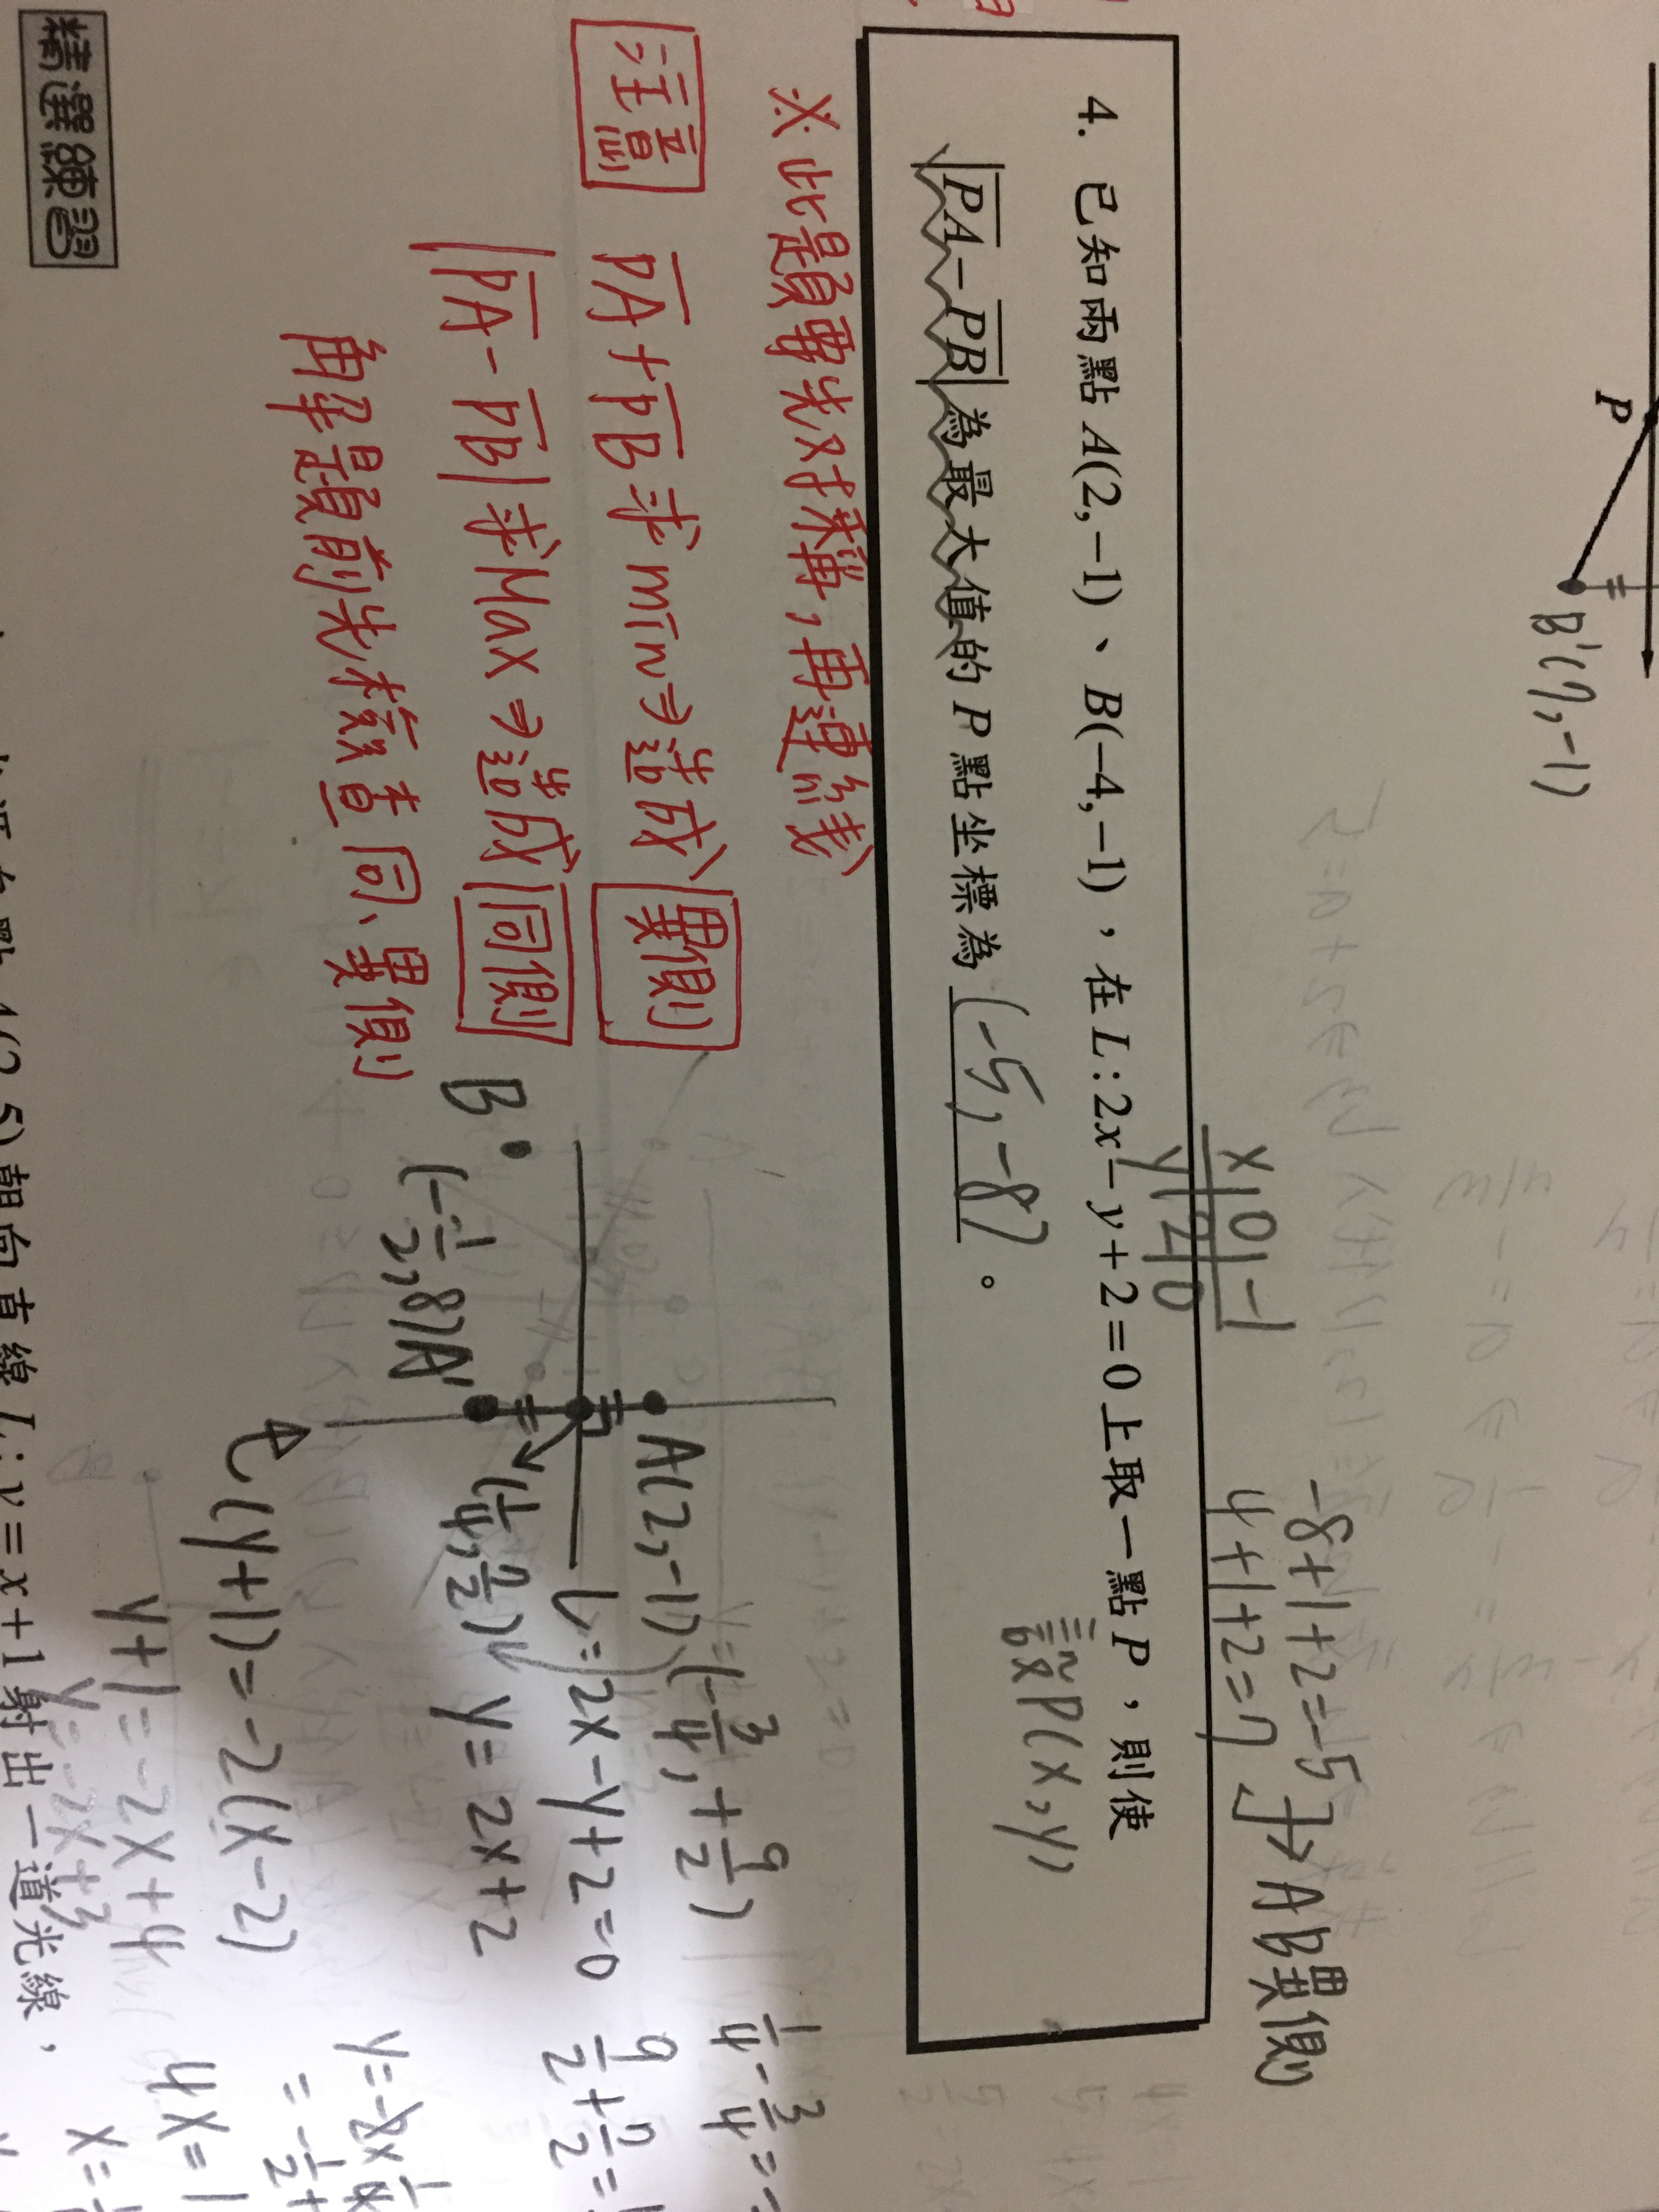 P
B'(7,-1)
-8+1+2=-5
4+1+2=7
→AB異側
x 0 -1
y 2 0
4. 已知兩點 A(2,-1)、B(-4,-1),在 L:2x-y+2=0 上取一點 P,則使
設P(x,y)
|PA-PB|為最大值的 P 點坐標為 (-5,-8)。
※此題要先对稱,再連線
注意 PA+PB求min⇒造成異側
|PA-PB|求Max⇒造成同側
解題前先檢查同、異側
A(2,-1)
(-3/4,+9/2)
1/4-3/4=-
L=2x-y+2=0
9/2+7/2=
B
A'
(-1/2,8)
(1/4,
y=2x+2
(y+1)=-2(x-2)
y+1=-2x+4
y=-2x+3
4x=1
x=
精選練習
A(2,5)朝向直線 L:y=x+1射出一道光線,